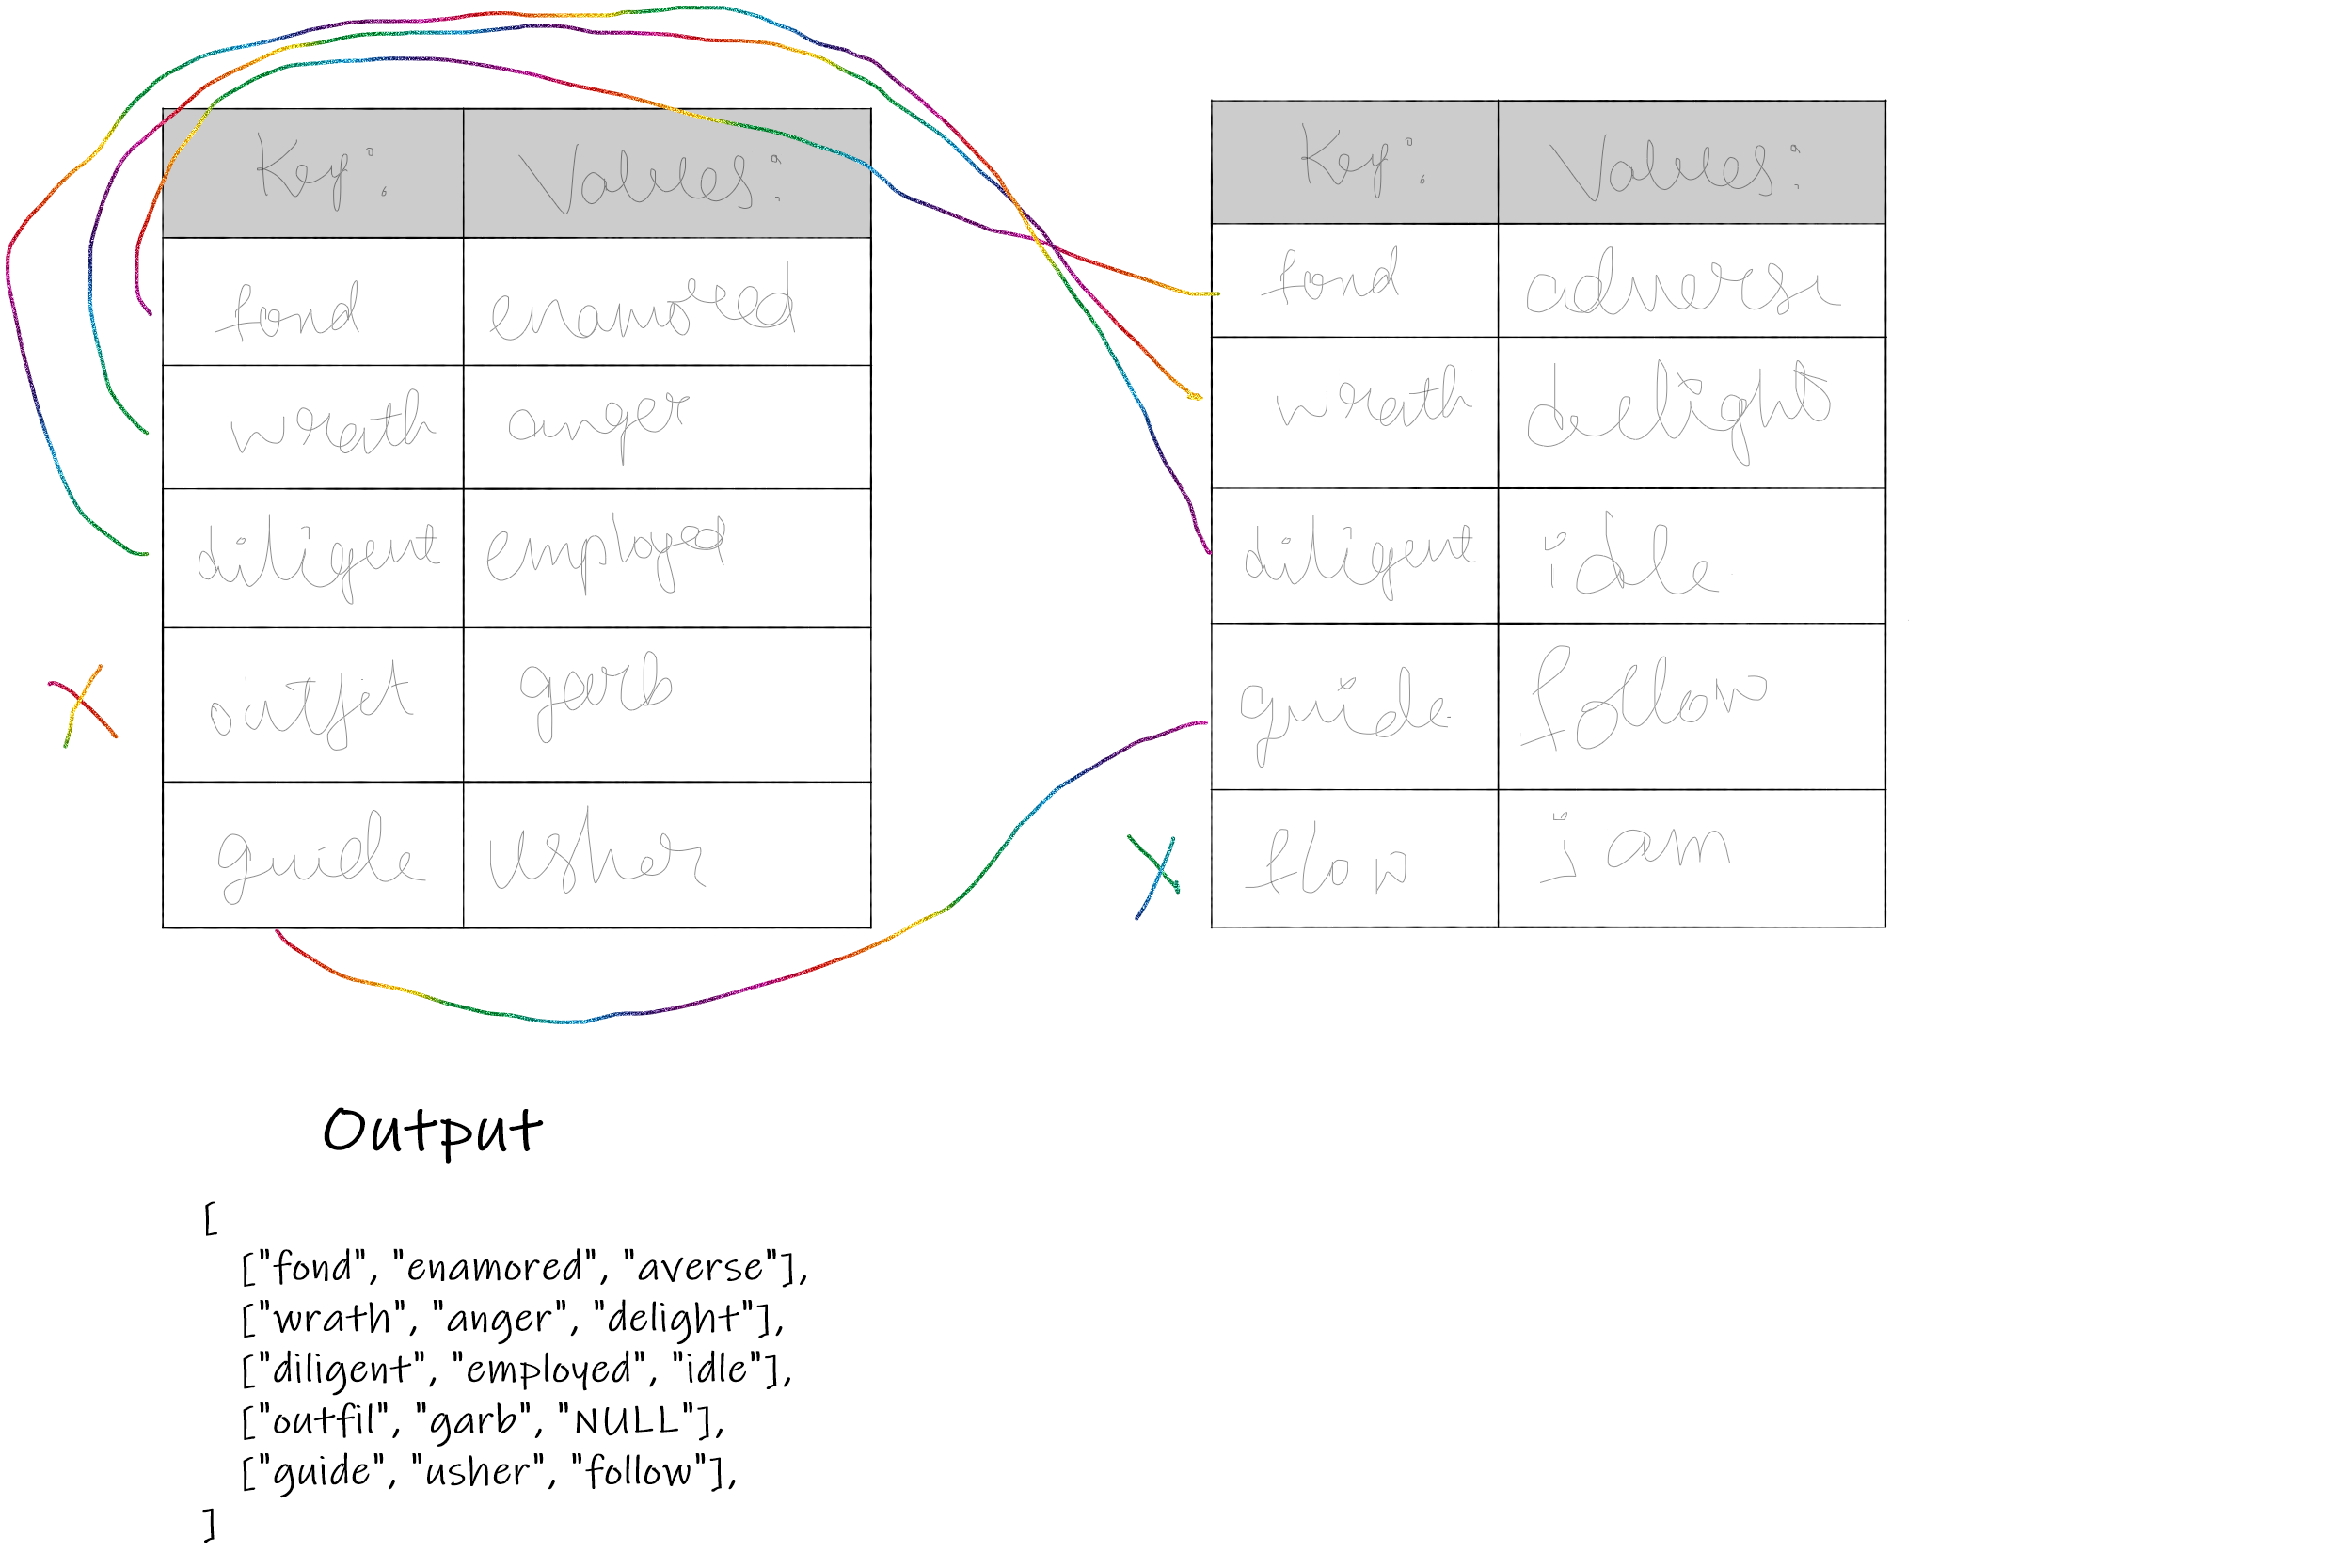 Key: Values:
fond enamored
wrath anger
diligent employed
outfit garb
guide usher
Key: Values:
fond adverse
wrath delight
diligent idle
guide follow
flow jam
Output
[
["fond", "enamored", "averse"],
["wrath", "anger", "delight"],
["diligent", "employed", "idle"],
["outfil", "garb", "NULL"],
["guide", "usher", "follow"],
]